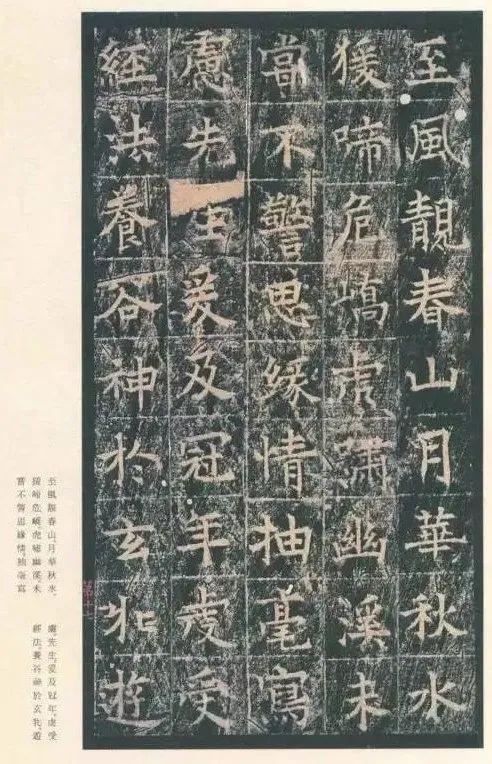 至風靚春山月華秋水
猨啼危嶠虎嘯幽溪未
嘗不警思緣情抽毫寫
慮先生爰及冠年虔受
經法養谷神於玄牝遊
至風靚春山，月華秋水。
猨啼危嶠，虎嘯幽溪，未
嘗不警思緣情，抽毫寫
慮。先生爰及冠年，虔受
經法，養谷神於玄牝，遊